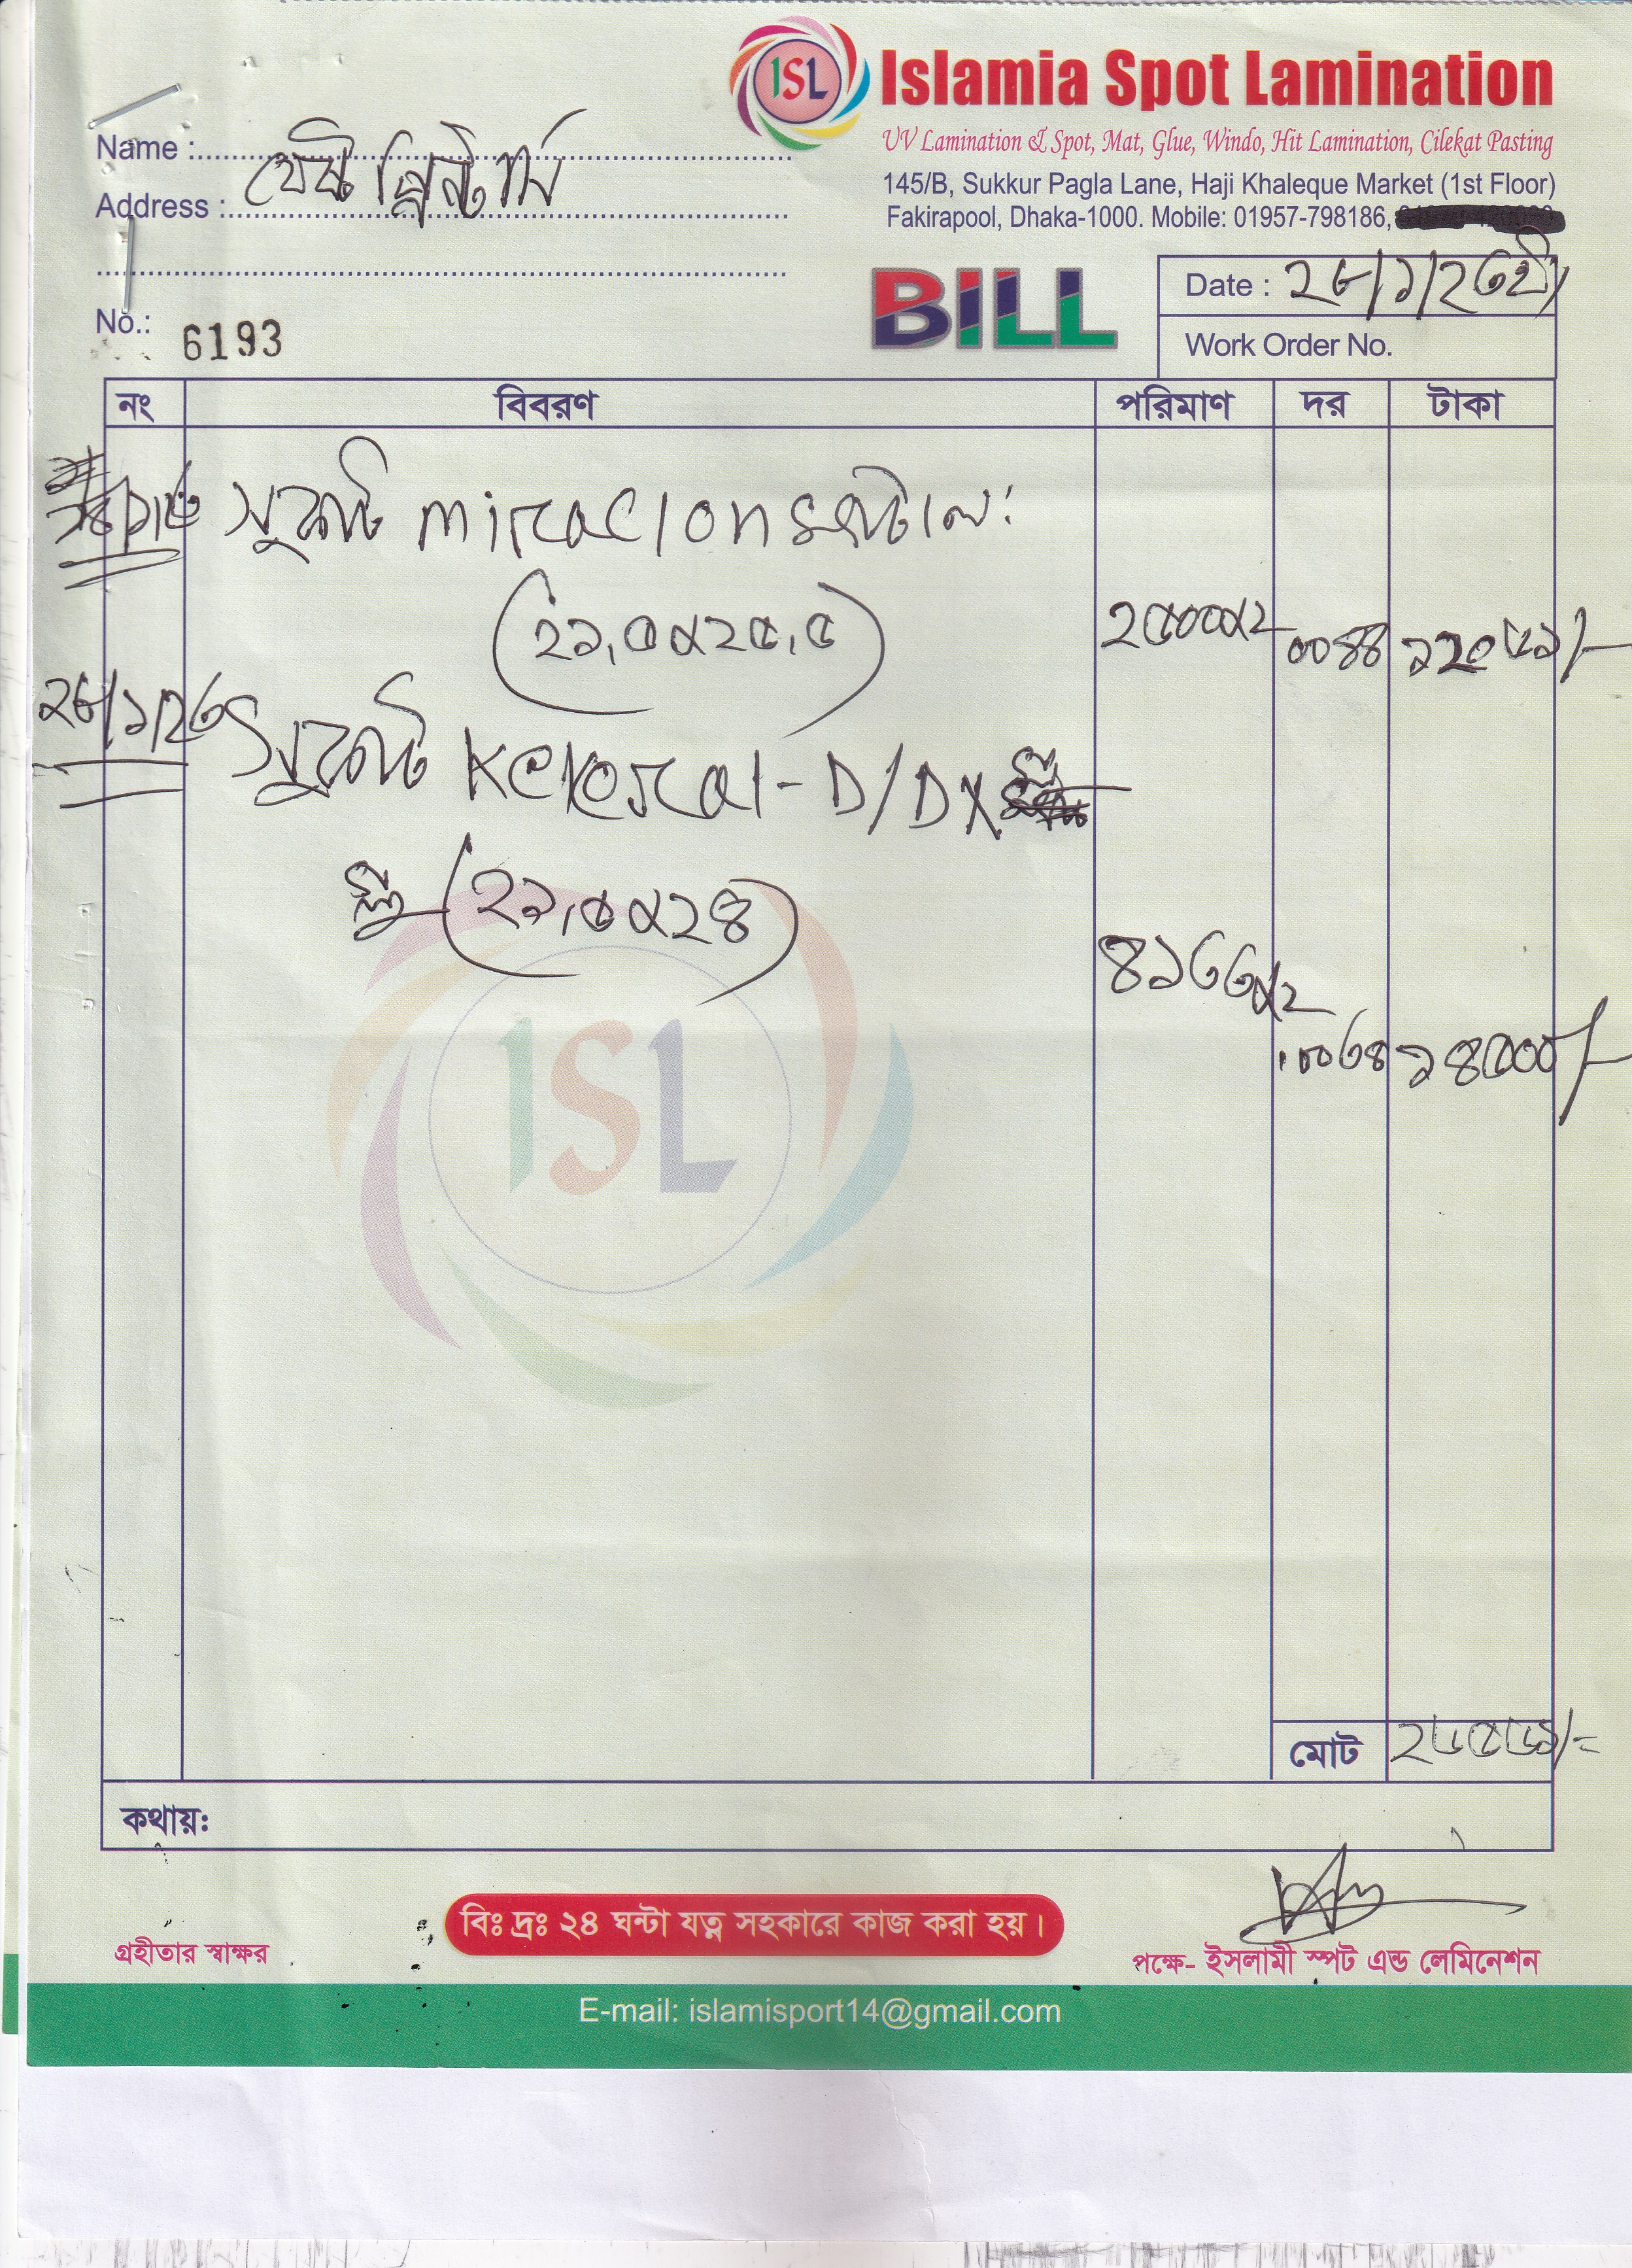 ISL
Islamia Spot Lamination
UV Lamination & Spot, Mat, Glue, Windo, Hit Lamination, Cilekat Pasting
145/B, Sukkur Pagla Lane, Haji Khaleque Market (1st Floor)
Fakirapool, Dhaka-1000. Mobile: 01957-798186,
Name : বেষ্ট প্রিন্টার্স
Address :
BILL
Date : ২৮/১/২৩ইং
Work Order No.
No.: 6193
নং বিবরণ পরিমাণ দর টাকা
(২১.৫x২৫.৫) ২৫০০x২ ০০৪৪
২৮/১/২৩
(২১.৫x২৪)
৪১৩৩x২
১৪৫০০/-
ISL
মোট ২৬৫৬১/=
কথায়:
বিঃ দ্রঃ ২৪ ঘন্টা যত্ন সহকারে কাজ করা হয়।
গ্রহীতার স্বাক্ষর
পক্ষে- ইসলামী স্পট এন্ড লেমিনেশন
E-mail: islamisport14@gmail.com